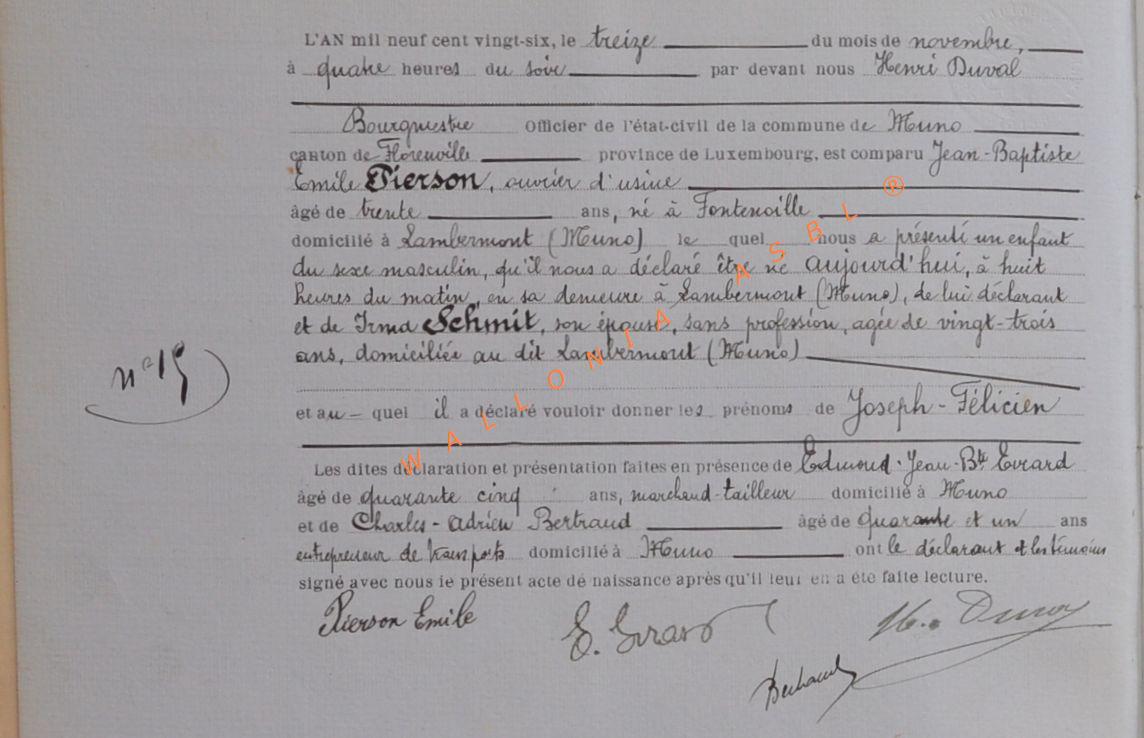 L'AN mil neuf cent vingt-six, le treize du mois de novembre,
à quatre heures du soir par devant nous Henri Duval
Bourgmestre Officier de l'état-civil de la commune de Muno
canton de Florenville province de Luxembourg, est comparu Jean-Baptiste
Emile Pierson, ouvrier d'usine
âgé de trente ans, né à Fontenoille
domicilié à Lambermont (Muno) le quel nous a présenté un enfant
du sexe masculin, qu'il nous a déclaré être né aujourd'hui, à huit
heures du matin, en sa demeure à Lambermont (Muno), de lui déclarant
et de Irma Schmit, son épouse, sans profession, agée de vingt-trois
ans, domiciliée au dit Lambermont (Muno)
n° 19
et au-quel il a déclaré vouloir donner les prénoms de Joseph-Félicien
Les dites déclaration et présentation faites en présence de Edmond-Jean-Bte Evrard
âgé de quarante cinq ans, marchand-tailleur domicilié à Muno
et de Charles-Adrien Bertrand âgé de quarante et un ans
entrepreneur de transports domicilié à Muno ont le déclarant et les témoins
signé avec nous le présent acte de naissance après qu'il leur en a été faite lecture.
Pierson Emile
E. Evrard
H. Duval
Bertrand
WALLONIA ASBL ®